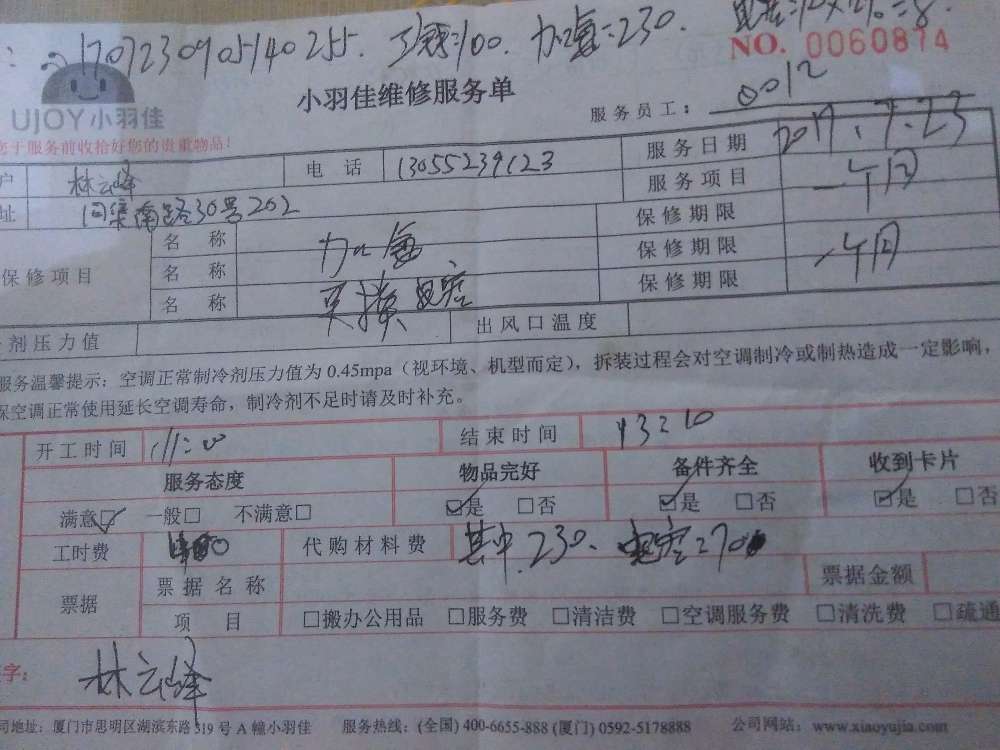 1707230905140255. 工钱:100. 加氟=230.
NO. 0060874
UJOY小羽佳
小羽佳维修服务单
服务员工： 0012
您于服务前收拾好您的贵重物品！
户 林云峰 电 话 13055239123 服务日期 2017.7.23
服务项目 一年内
址 南路30号202 保修期限
保修项目 名 称 加氟 保修期限 一年内
名 称 保修期限
名 称 更换电容
剂压力值 出风口温度
服务温馨提示：空调正常制冷剂压力值为 0.45mpa（视环境、机型而定），拆装过程会对空调制冷或制热造成一定影响，
保空调正常使用延长空调寿命，制冷剂不足时请及时补充。
开工时间 11:00 结束时间 13:10
服务态度 物品完好 备件齐全 收到卡片
满意☑ 一般□ 不满意□ ☑是 □否 ☑是 □否 ☑是 □否
工时费 代购材料费 其中.230. 电容=70
票据 票据名称 票据金额
项 目 □搬办公用品 □服务费 □清洁费 □空调服务费 □清洗费 □疏通
字： 林云峰
司地址：厦门市思明区湖滨东路 319 号 A 幢小羽佳 服务热线：(全国) 400-6655-888 (厦门) 0592-5178888 公司网站：www.xiaoyujia.com